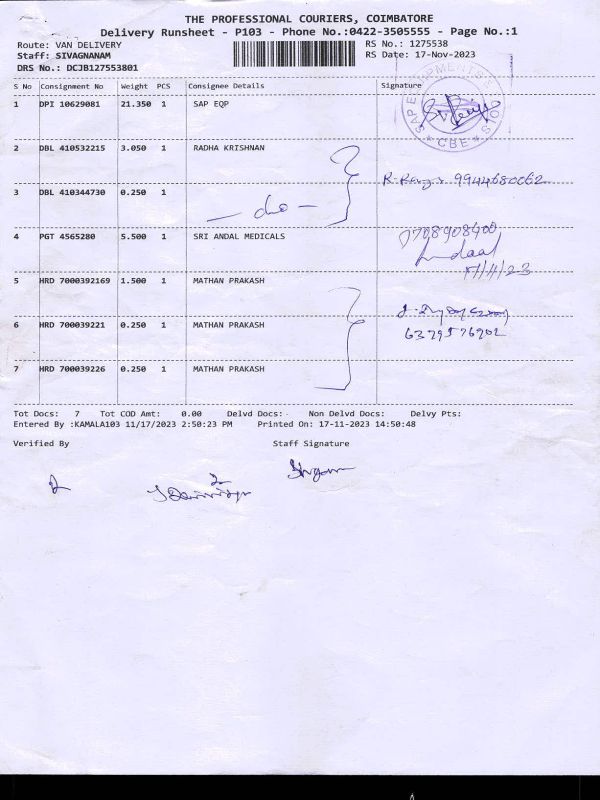 THE PROFESSIONAL COURIERS, COIMBATORE
Delivery Runsheet - P103 - Phone No.:0422-3505555 - Page No.:1
Route: VAN DELIVERY RS No.: 1275538
Staff: SIVAGNANAM RS Date: 17-Nov-2023
DRS No.: DCJB127553801
S No Consignment No Weight PCS Consignee Details Signature
1 DPI 10629081 21.350 1 SAP EQP
SAP EQUIPMENTS
CBE
2 DBL 410532215 3.050 1 RADHA KRISHNAN
9944680062
3 DBL 410344730 0.250 1
— do —
4 PGT 4565280 5.500 1 SRI ANDAL MEDICALS
9708908400
5 HRD 7000392169 1.500 1 MATHAN PRAKASH
6 HRD 700039221 0.250 1 MATHAN PRAKASH
6379576902
7 HRD 700039226 0.250 1 MATHAN PRAKASH
Tot Docs: 7 Tot COD Amt: 0.00 Delvd Docs: Non Delvd Docs: Delvy Pts:
Entered By :KAMALA103 11/17/2023 2:50:23 PM Printed On: 17-11-2023 14:50:48
Verified By Staff Signature